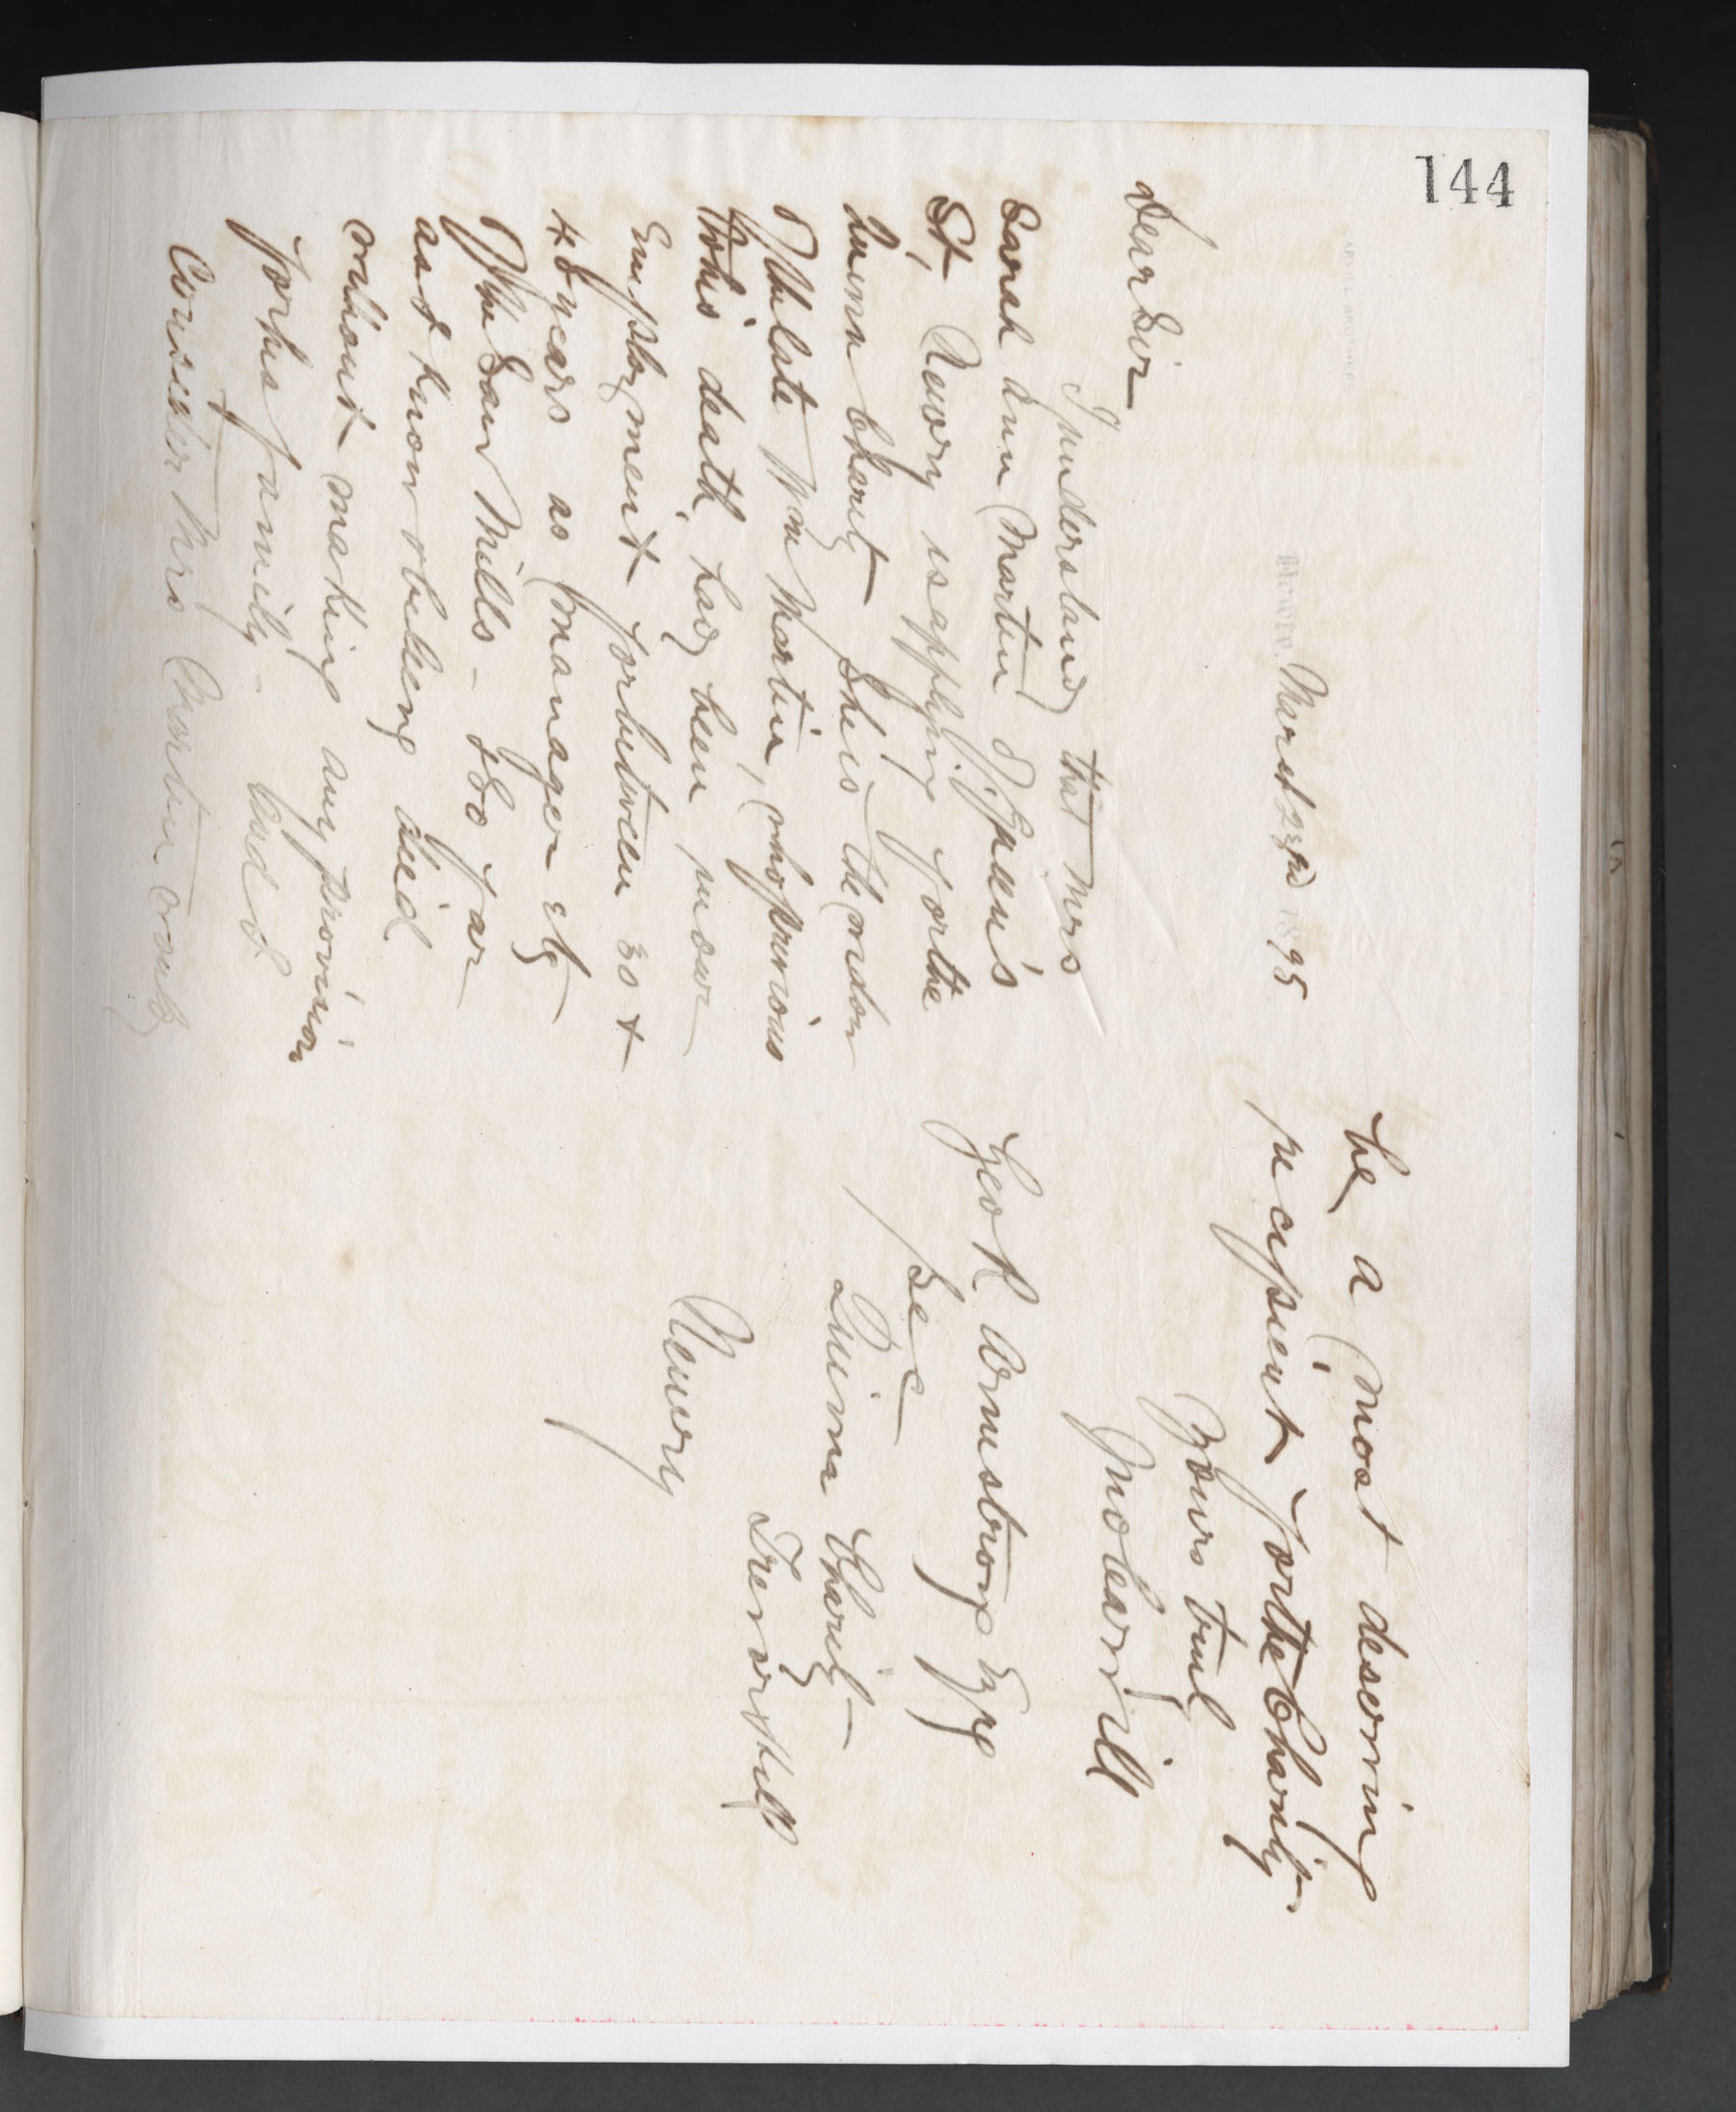 144
Newry, March 23rd 1895
Dear Sir
I understand that Mrs
Sarah Ann Martin of Queen's
St, Newry is applying for the
Quinn Charity She is the widow
of the late Wm Martin, who previous
to his death had been in our
Employment for between 30 &
40 years as manager of
of the Saw Mills - & so far
as I know or believe died
without making any provision
for his family - and I
Consider Mrs Martin would
be a most deserving
recipient for the Charity.
Yours truly
Geo R Armstrong Esqe
Sec
Quinn Charity
Trevor Hill
Newry